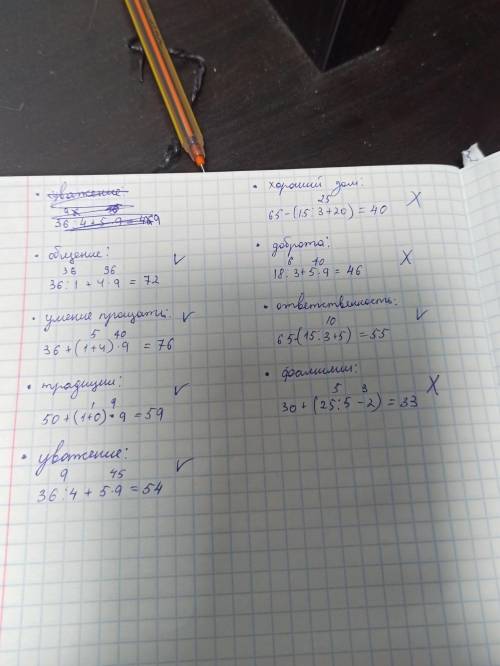 • уважение
36:4+5·9=
• общение:
36 36
36:1+4·9=72 ✓
• умение прощать:
5 40
36+(1+4)·9=76 ✓
• традиции:
1 9
50+(1+0)·9=59 ✓
• уважение:
9 45
36:4+5·9=54 ✓
• хороший дом:
25
65-(15:3+20)=40 X
• доброта:
6 40
18:3+5·9=46 X
• ответственность:
10
65-(15:3+5)=55 ✓
• фамилии:
5 3
30+(25:5-2)=33 X